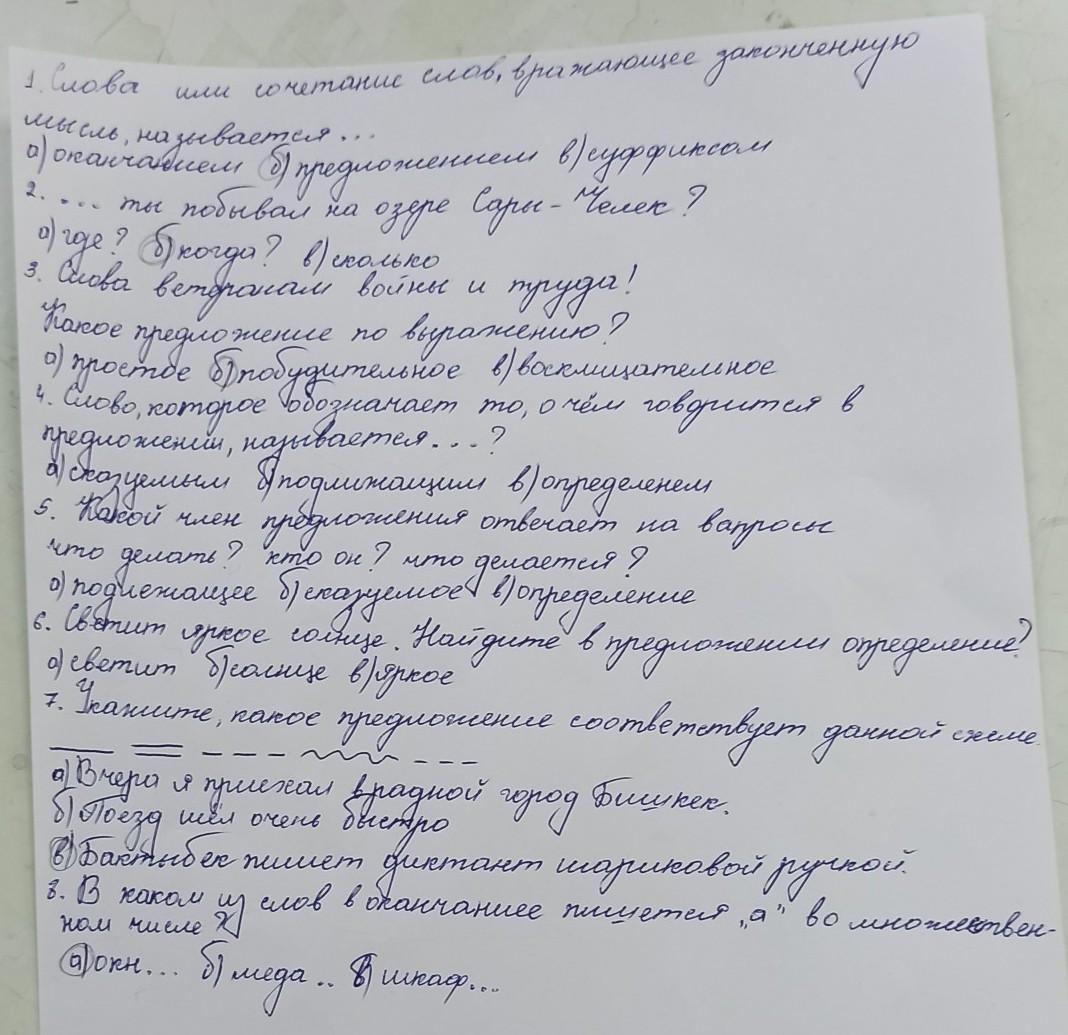 1. Слова или сочетание слов, вражающее законченную
мысль, называется...
а) оканчанием б) предложением в) суффиксом
2. .... ты побывал на озере Сары-Челек?
а) где? б) когда? в) сколько
3. Слова ветеранам войны и труда!
Какое предложение по выражению?
а) простое б) побудительное в) восклицательное
4. Слово, которое обозначает то, о чём говорится в
предложении, называется....?
а) сказуемым б) подлижащим в) определенем
5. Какой член предложения отвечает на вапросы
что делать? кто он? что делается?
а) подлежащее б) сказуемое в) определение
6. Светит яркое солнце. Найдите в предложении определение?
а) светит б) солнце в) яркое
7. Укажите, какое предложение соответствует данной схеме.
а) Вчера я приехал в радной город Бишкек.
б) Поезд шёл очень быстро
в) Бактыбек пишет диктант шариковой ручкой.
8. В каком из слов в оканчание пишется „а" во множествен-
ном числе
а) окн... б) меда.. в) шкаф...